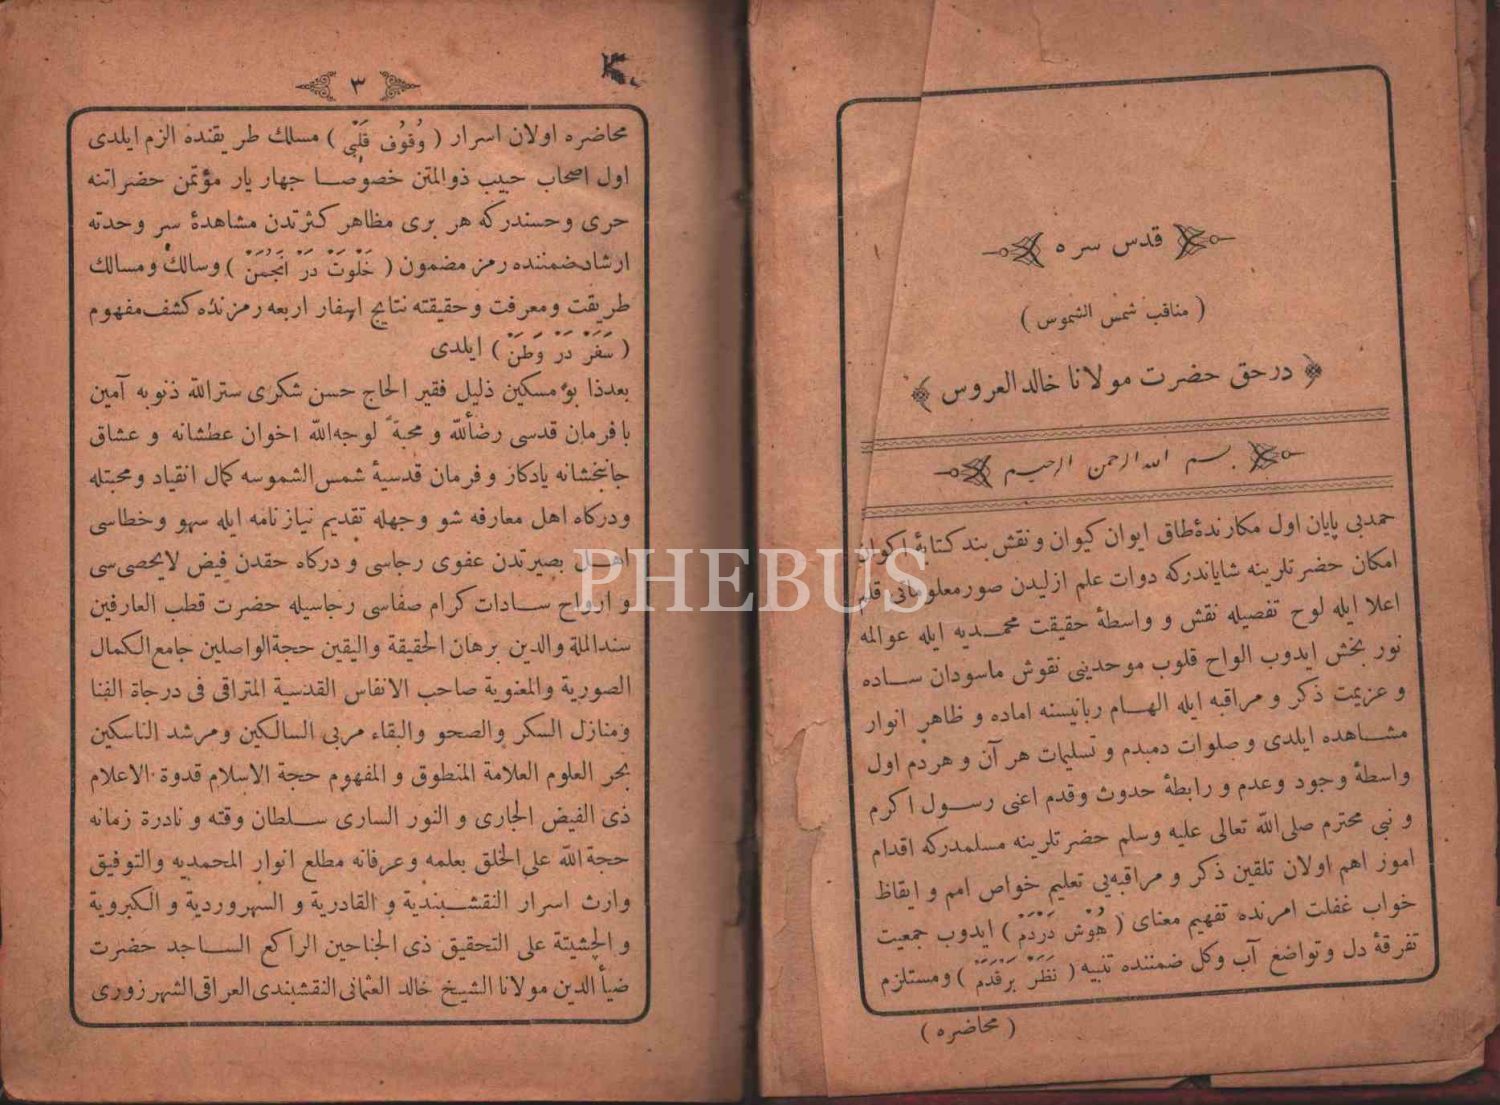 قدس سره
( مناقب شمس الشموس )
درحق حضرت مولانا خالد العروس
بسم الله الرحمن الرحيم
حمدبى پايان اول مكارندۀ طاق ايوان كيوان ونقش بند كتابۀ اكوان
امكان حضرتلرينه شاياندركه دوات علم ازليدن صورمعلوماتى قلم
اعلا ايله لوح تفصيله نقش و واسطۀ حقيقت محمديه ايله عوالمه
نور بخش ايدوب الواح قلوب موحدينى نقوش ماسودان ساده
و عزيمت ذكر و مراقبه ايله الهام ربانيسنه اماده و ظاهر انوار
مشاهده ايلدى و صلوات دمبدم و تسليمات هر آن و هردم اول
واسطۀ وجود وعدم و رابطۀ حدوث وقدم اعنى رسول اكرم
و نبى محترم صلى الله تعالى عليه وسلم حضرتلرينه مسلمدركه اقدام
امور اهم اولان تلقين ذكر و مراقبه‌يى تعليم خواص امم و ايقاظ
خواب غفلت امرنده تفهيم معناى ( هُوْش دَرْدَمْ ) ايدوب جمعيت
تفرقۀ دل وتواضع آب وكل ضمننده تنبيه ( نَظَرْ بَرْقَدَمْ ) ومستلزم
( محاضره )
٣
محاضره اولان اسرار ( وُقُوُف قَلْبى ) مسلك طريقنده الزم ايلدى
اول اصحاب حبيب ذوالمتن خصوصا جهار يار مؤتمن حضراتنه
حرى وحسندركه هر برى مظاهر كثرتدن مشاهدۀ سر وحدته
ارشاد ضمننده رمز مضمون ( خَلْوَتْ دَرْ اَنْجُمَنْ ) وسالك ومسالك
طريقت ومعرفت وحقيقته نتايج اسفار اربعه رمزنده كشف مفهوم
( سَفَرْ دَرْ وَطَنْ ) ايلدى
بعدذا بو مسكين ذليل فقير الحاج حسن شكرى سترالله ذنوبه آمين
با فرمان قدسى رضاًلله و محبةً لوجه‌الله اخوان عطشانه و عشاق
جانبخشانه يادكار و فرمان قدسيۀ شمس الشموسه كمال انقياد ومحبتله
ودركاه اهل معارفه شو وجهله تقديم نيازنامه ايله سهو وخطاسى
اهل بصيرتدن عفوى رجاسى و دركاه حقدن فيض لايحصى سى
و ارواح سادات كرام صفاسى رجاسيله حضرت قطب العارفين
سندالملة والدين برهان الحقيقة واليقين حجةالواصلين جامع الكمال
الصورية والمعنوية صاحب الانفاس القدسية المتراقى فى درجاة الفنا
ومنازل السكر والصحو والبقاء مربى السالكين ومرشد الناسكين
بحر العلوم العلامة المنطوق و المفهوم حجة الاسلام قدوة الاعلام
ذى الفيض الجارى و النور السارى سلطان وقته و نادرة زمانه
حجة الله على الخلق بعلمه وعرفانه مطلع انوار المحمديه والتوفيق
وارث اسرار النقشبندية و القادرية و السهروردية و الكبروية
و الچشتية على التحقيق ذى الجناحين الراكع الساجد حضرت
ضيأ الدين مولانا الشيخ خالد العثمانى النقشبندى العراقى الشهرزورى
PHEBUS